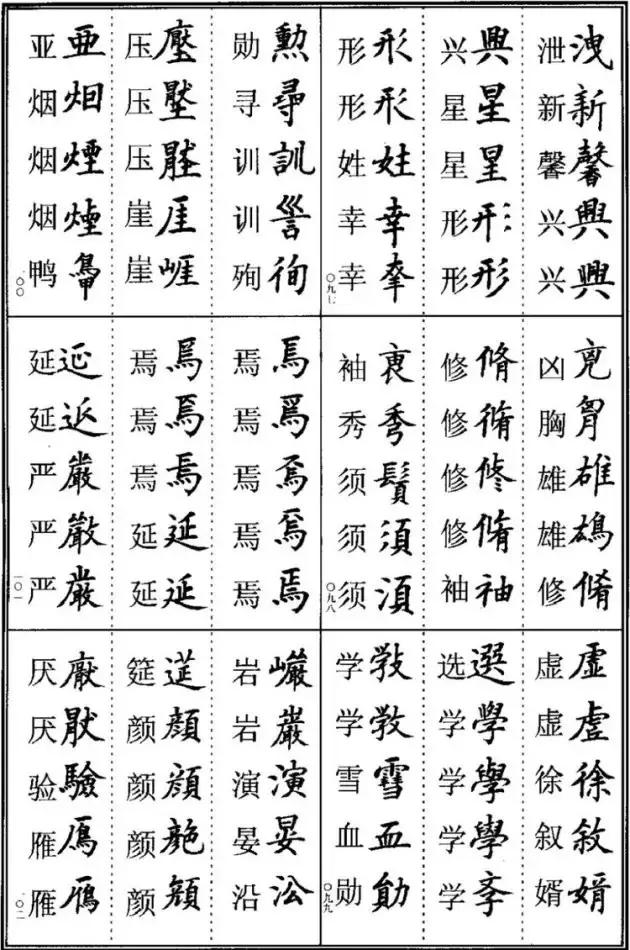 泄洩 新新 馨馨 兴興 兴興
兴興 星星 星星 形形 形形
形形 形形 姓姓 幸幸 幸
〇九七
凶兇 胸胷 雄雄 雄 修脩
修脩 修脩 修修 修脩 袖袖
袖 秀秀 须鬚 须須 须湏
〇九八
虚虚 虚虚 徐徐 叙敘 婿婿
选選 学學 学學 学學 学斈
学 学教 雪雪 血血 勋勛
〇九九
勋勳 寻尋 训訓 训 殉徇
压壓 压 压 崖厓 崖崕
亚亞 烟烟 烟煙 烟煙 鸭
一〇〇
焉焉 焉焉 焉焉 焉焉 焉焉
焉焉 焉焉 焉焉 延延 延延
延延 延 严嚴 严 严嚴
一〇一
岩巖 岩巖 演演 晏晏 沿㳂
筵莚 颜顔 颜顔 颜 颜
厌厭 厌猒 验驗 雁鴈 雁鴈
一〇二